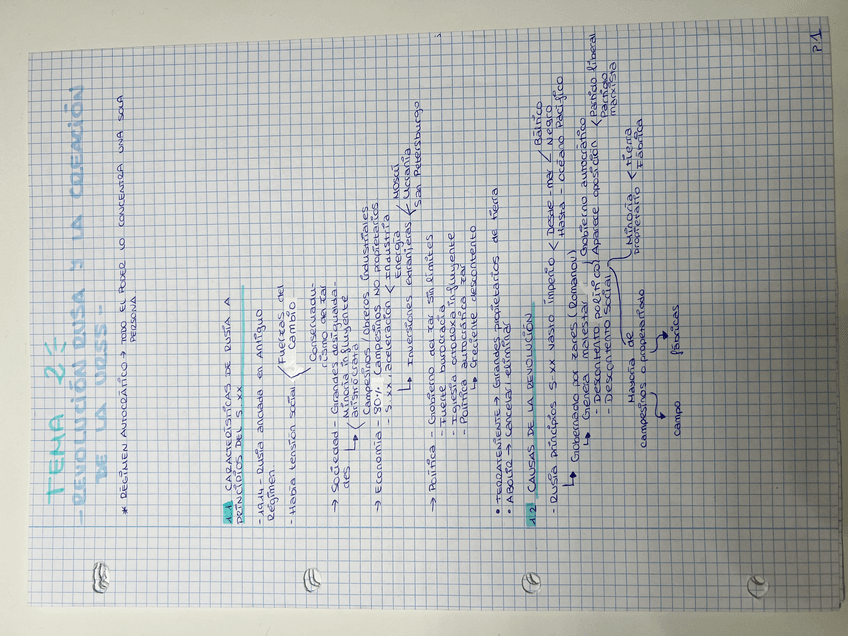 TEMA 2:
- REVOLUCIÓN RUSA Y LA CREACIÓN
DE LA URSS -
* RÉGIMEN AUTOCRÁTICO → TODO EL PODER LO CONCENTRA UNA SOLA
PERSONA
1.1 CARACTERÍSTICAS DE RUSIA A
PRINCIPIOS DEL S.XX
- 1914 - Rusia anclada en Antiguo
Régimen
- Había tensión social < Fuerzas del
cambio
Conservadu-
rismo del zar
→ Sociedad - Grandes desigualda-
des
↳ Minoría influyente
aristócrata
Campesinos / obreros industriales
→ Economía - 80% campesinos NO propietarios
- S.XX, aceleración < Industria
Energía
↳ Inversiones extranjeras < Moscú
Ucrania
San Petersburgo
→ Política - Gobierno del zar sin límites
- Fuerte burocracia
- Iglesia ortodoxa influyente
- Política autocrática zar
↳ Creciente descontento
• TERRATENIENTE → Grandes propietarios de tierra
• ABOLIR → Cancelar, eliminar
1.2 CAUSAS DE LA REVOLUCIÓN
- Rusia principios S.XX vasto imperio < Desde - mar < Báltico
Negro
Hasta - Océano Pacífico
↳ Gobernado por zares (Romanov)
↳ Genera malestar
- Descontento político
- Descontento social
Gobierno autocrático
Aparece oposición < Partido liberal
Partido
marxista
Minoría
propietario < Tierra
Fábrica
Mayoría de
campesinos o proletariado
campo
fábricas
P.1